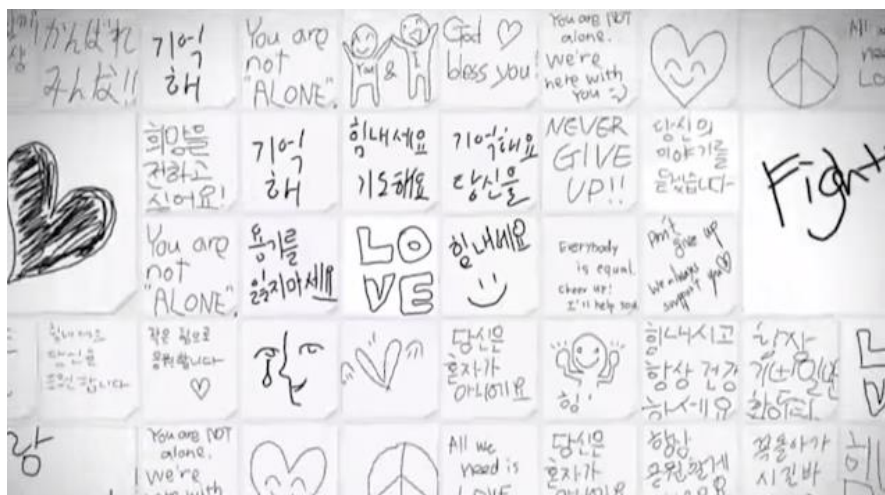 がんばれ
みんな!!
기억
해
You are
not
"ALONE".
You & I
God ♡
bless you!
You are NOT
alone.
We're
here with
you :)
All we
need
LO
희망을
전하고
싶어요!
기억
해
힘내세요
기도해요
기억해요
당신을
NEVER
GIVE
UP!!
당신의
이야기를
듣겠습니다
Fight
You are
not
"ALONE".
용기를
잃지마세요
LO
VE
힘내세요
Everybody
is equal.
cheer up!
I'll help you
Don't
give up
We always
support you♡
힘내세요
당신을
응원합니다
작은 힘으로
응원합니다
♡
당신은
혼자가
아니에요
힘!
힘내시고
항상 건강
하세요
L
V
랑
You are NOT
alone.
We're
here with
All we
need is
LOVE
당신은
혼자가
아니에요
항상
응원할게
꼭돌아가
시길바